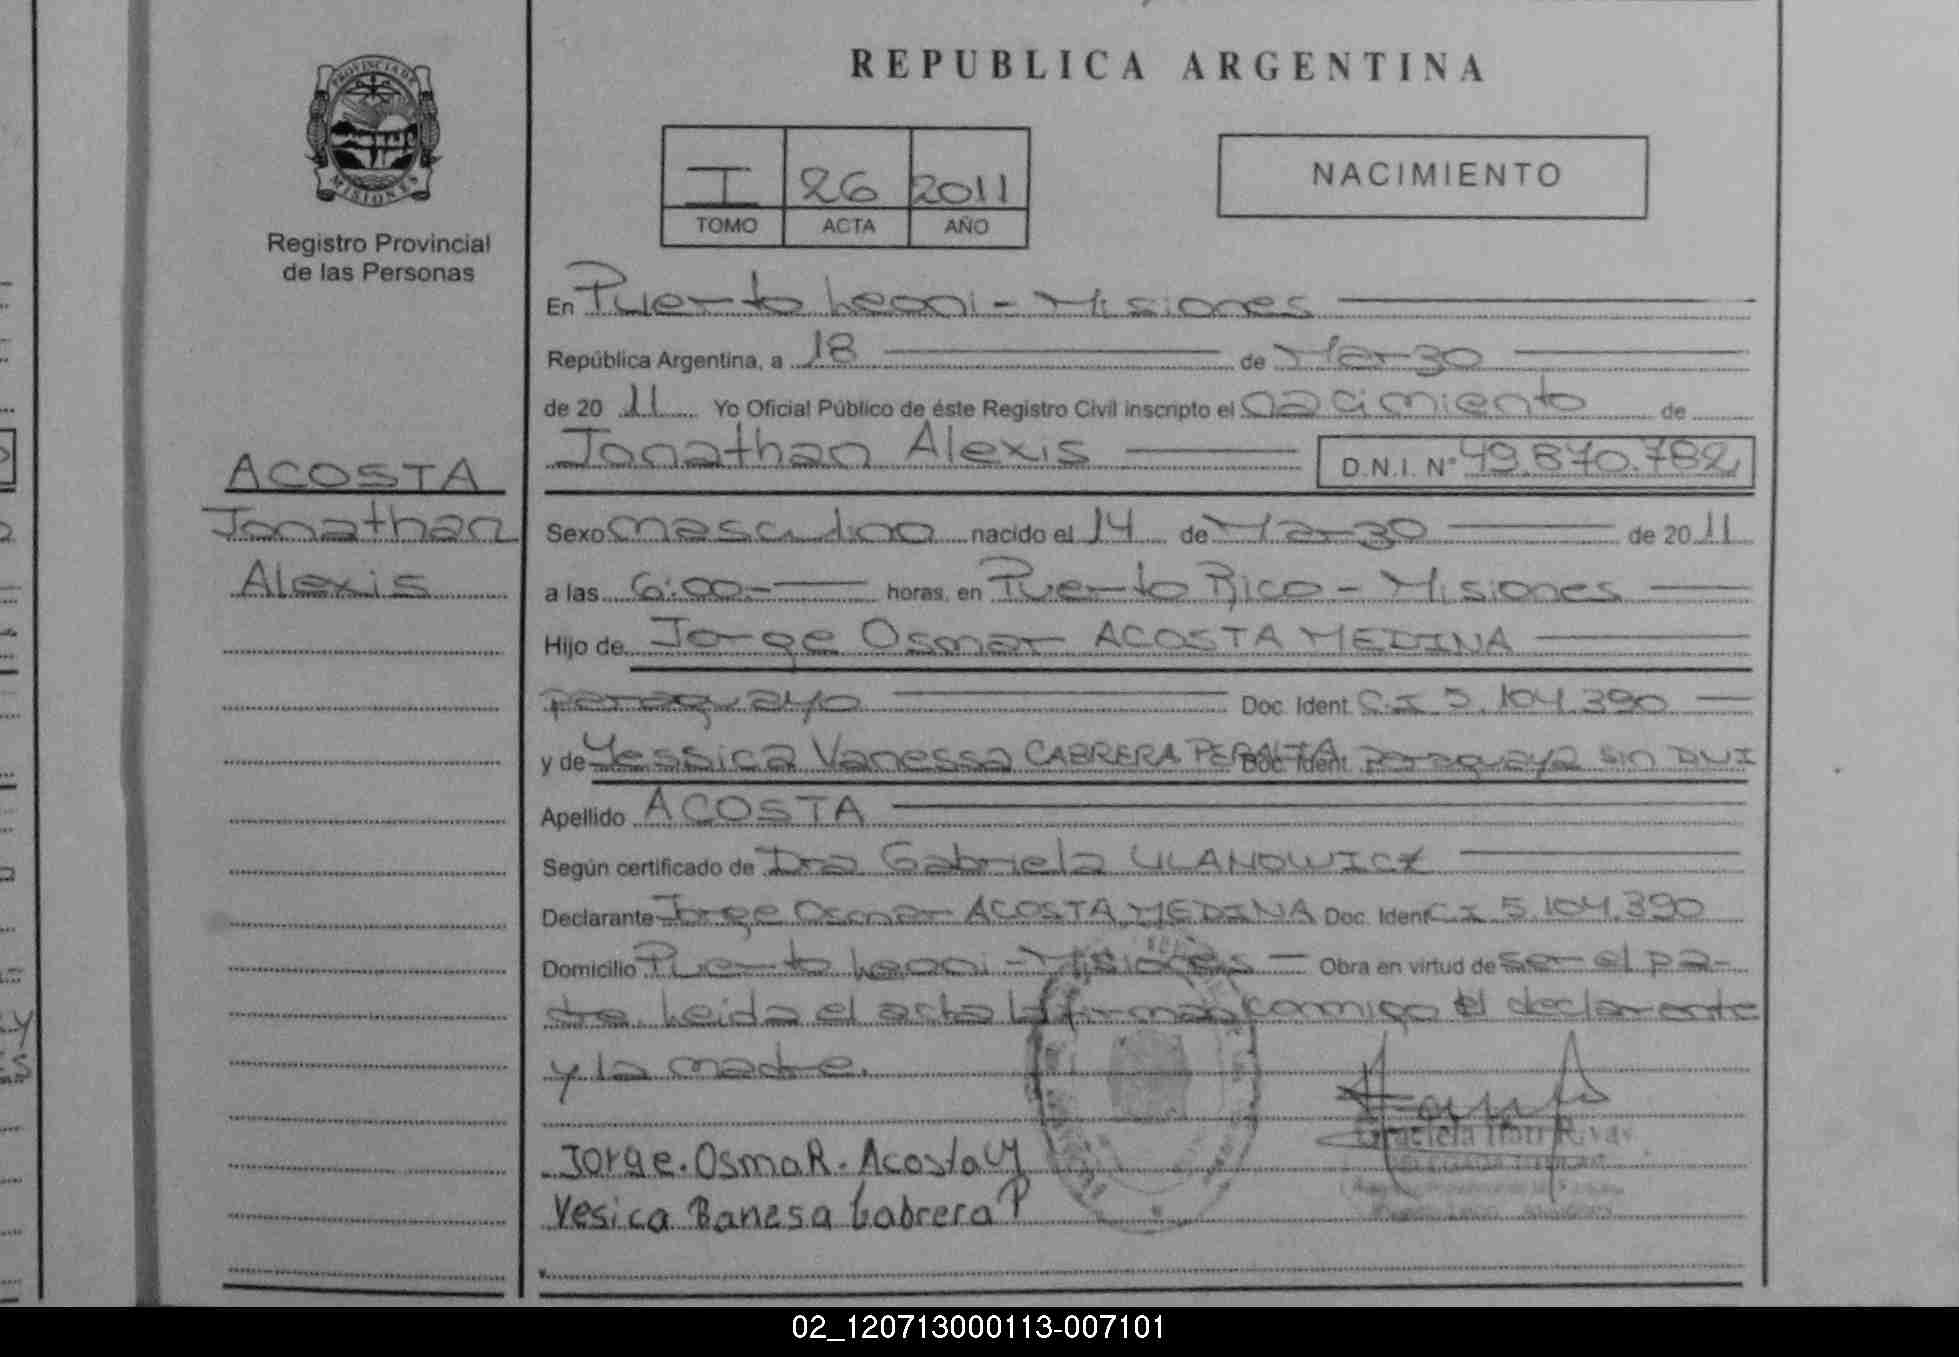 REPUBLICA ARGENTINA
PROVINCIA DE
MISIONES
Registro Provincial
de las Personas
I 26 2011
TOMO ACTA AÑO
NACIMIENTO
En Puerto Leoni - Misiones
República Argentina, a 18 de Marzo
de 2011 Yo Oficial Público de éste Registro Civil inscripto el nacimiento de
Jonathan Alexis D.N.I. Nº 49.870.782
ACOSTA
Jonathan
Alexis
Sexo masculino nacido el 14 de Marzo de 2011
a las 6:00.- horas, en Puerto Rico - Misiones
Hijo de Jorge Osmar ACOSTA MEDINA
paraguayo Doc. Ident. C.I 5.104.390
y de Yessica Vanessa CABRERA PERALTA Doc. Ident. paraguaya sin DNI
Apellido ACOSTA
Según certificado de Dra Gabriela ULANOWICZ
Declarante Jorge Osmar ACOSTA MEDINA Doc. Ident C I 5.104.390
Domicilio Puerto Leoni - Misiones Obra en virtud de ser el pa-
dre. Leida el acta la firman conmigo el declarante
y la madre.
Jorge. Osmar. Acosta M
Yesica Banesa Cabrera P
Graciela Itati Rivas
02_120713000113-007101